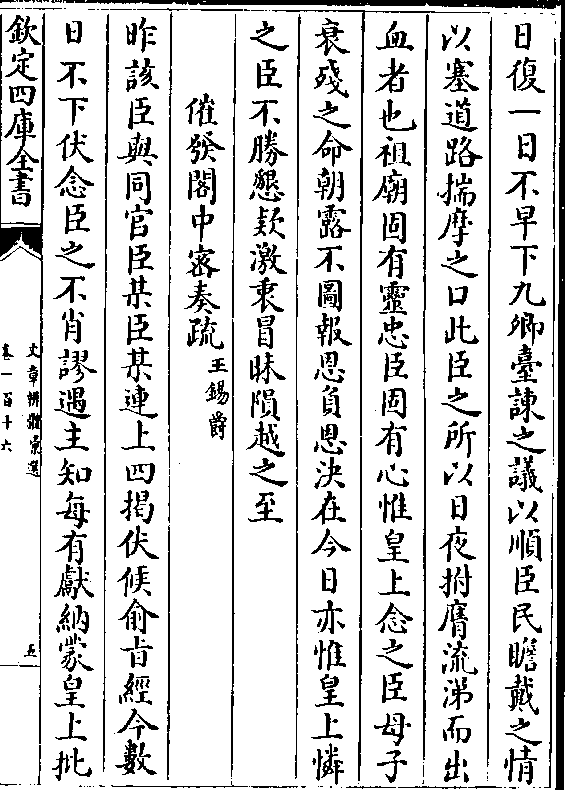 日復一日不早下九卿臺諫之議以順臣民瞻戴之情
以塞道路揣摩之口此臣之所以日夜拊膺流涕而出
血者也祖廟固有靈忠臣固有心惟皇上念之臣母子
衰殘之命朝露不圖報恩負恩決在今日亦惟皇上憐
之臣不勝懇欵激衷冒昧隕越之至
催發閣中宻奏疏 王錫爵
昨該臣與同官臣某臣某連上四揭伏候俞㫖經今數
日不下伏念臣之不肖謬遇主知每有獻納蒙皇上批
欽定四庫全書
文章辨體彚選
卷一百十六
五